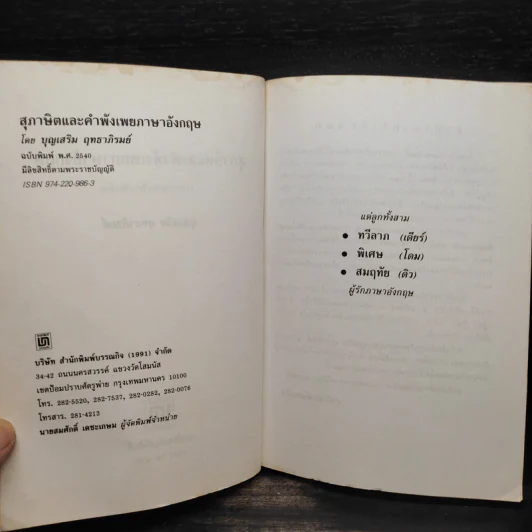 สุภาษิตและคำพังเพยภาษาอังกฤษ
โดย บุญเสริม ฤทธาภิรมย์
ฉบับพิมพ์ พ.ศ. 2540
มีลิขสิทธิ์ตามพระราชบัญญัติ
ISBN 974-220-986-3
บริษัท สำนักพิมพ์บรรณกิจ (1991) จำกัด
34-42 ถนนนครสวรรค์ แขวงวัดโสมนัส
เขตป้อมปราบศัตรูพ่าย กรุงเทพมหานคร 10100
โทร. 282-5520, 282-7537, 282-0282, 282-0076
โทรสาร. 281-4213
นายสมศักดิ์ เตชะเกษม ผู้จัดพิมพ์จำหน่าย
แด่ลูกทั้งสาม
• ทวีลาภ (เดียร์)
• พิเศษ (โดม)
• สมฤทัย (ดิว)
ผู้รักภาษาอังกฤษ